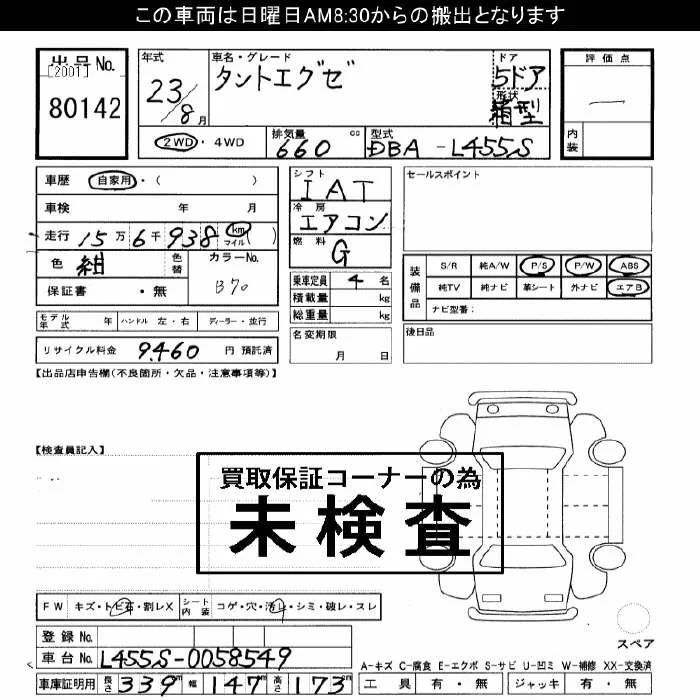 この車両は日曜日AM8:30からの搬出となります
出品No. 年式 車名・グレード ドア 評価点
[2001] タントエグゼ 5ドア
80142 23/8月 形状 箱型 内装
2WD・4WD 排気量 660 cc 型式 DBA-L455S
車歴 自家用・( ) シフト IAT セールスポイント
車検 年 月 冷房 エアコン
走行 15万6千938 km マイル ( ) 燃料 G
色 紺 色替 カラーNo. B70 乗車定員 4名 装備品 S/R 純A/W P/S P/W ABS
保証書 ・無 積載量 kg 純TV 純ナビ 革シート 外ナビ エアB
総重量 kg ナビ型番:
モデル年式 年 ハンドル 左・右 ディーラー・並行 名変期限 後日品
リサイクル料金 9,460 円 預託済 月 日
【出品店申告欄(不良箇所・欠品・注意事項等)】
【検査員記入】
買取保証コーナーの為
未検査
FW キズ・トビ石・割レX シート内装 コゲ・穴・汚レ・シミ・破レ・スレ
登録No. スペア
車台No. L455S-0058549 A-キズ C-腐食 E-エクボ S-サビ U-凹ミ W-補修 XX-交換済
車庫証明用 長さ 339m 幅 147m 高さ 173cm 工具 有・無 ジャッキ 有・無